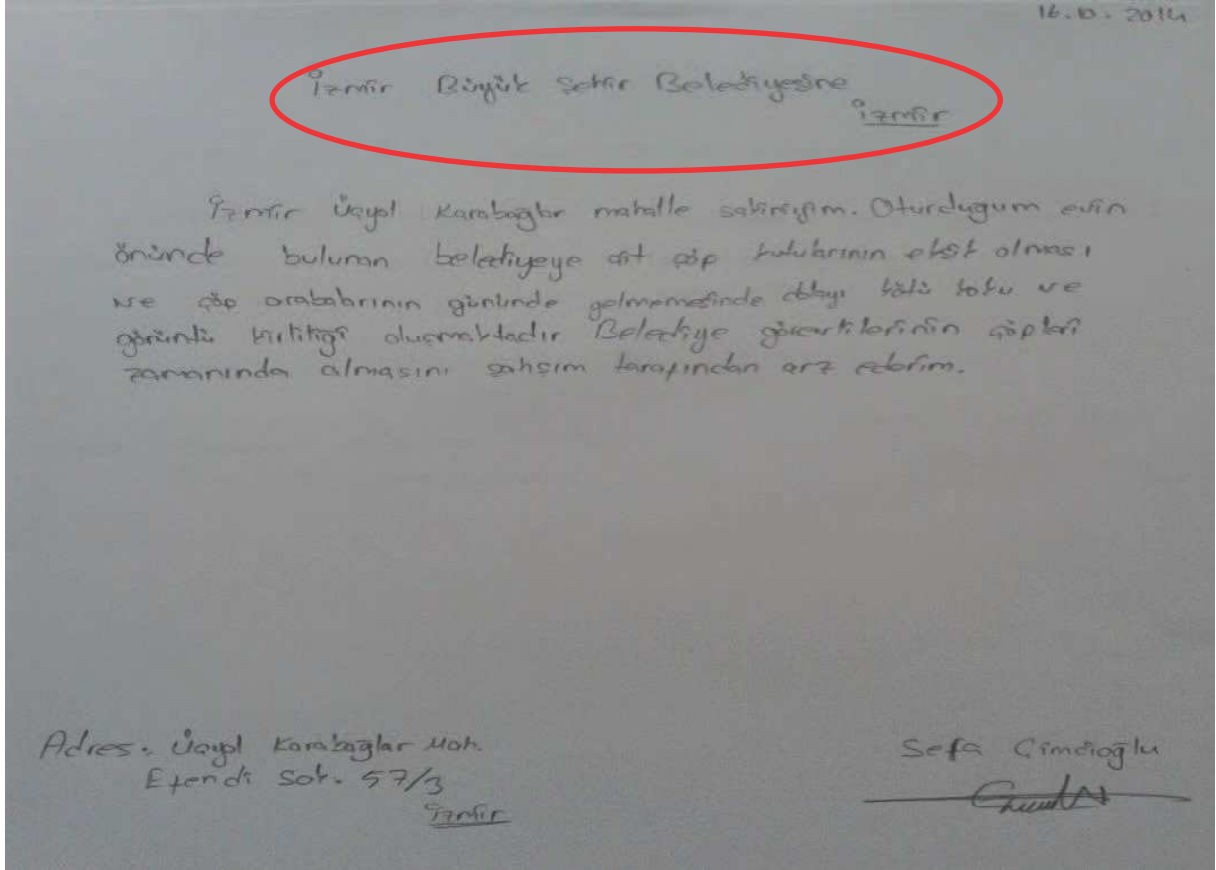 16.10.2014
İzmir Büyük Şehir Belediyesine
İzmir
İzmir Üçyol Karabağlar mahalle sakiniyim. Oturduğum evin
önünde bulunan belediyeye ait çöp kutularının eksik olması
ve çöp arabalarının gününde gelmemesinde dolayı kötü koku ve
görüntü kirliliği oluşmaktadır Belediye görevlilerinin çöpleri
zamanında almasını şahsım tarafından arz ederim.
Adres: Üçyol Karabağlar Mah.
Efendi Sok. 57/3
İzmir
Sefa Cimcioğlu